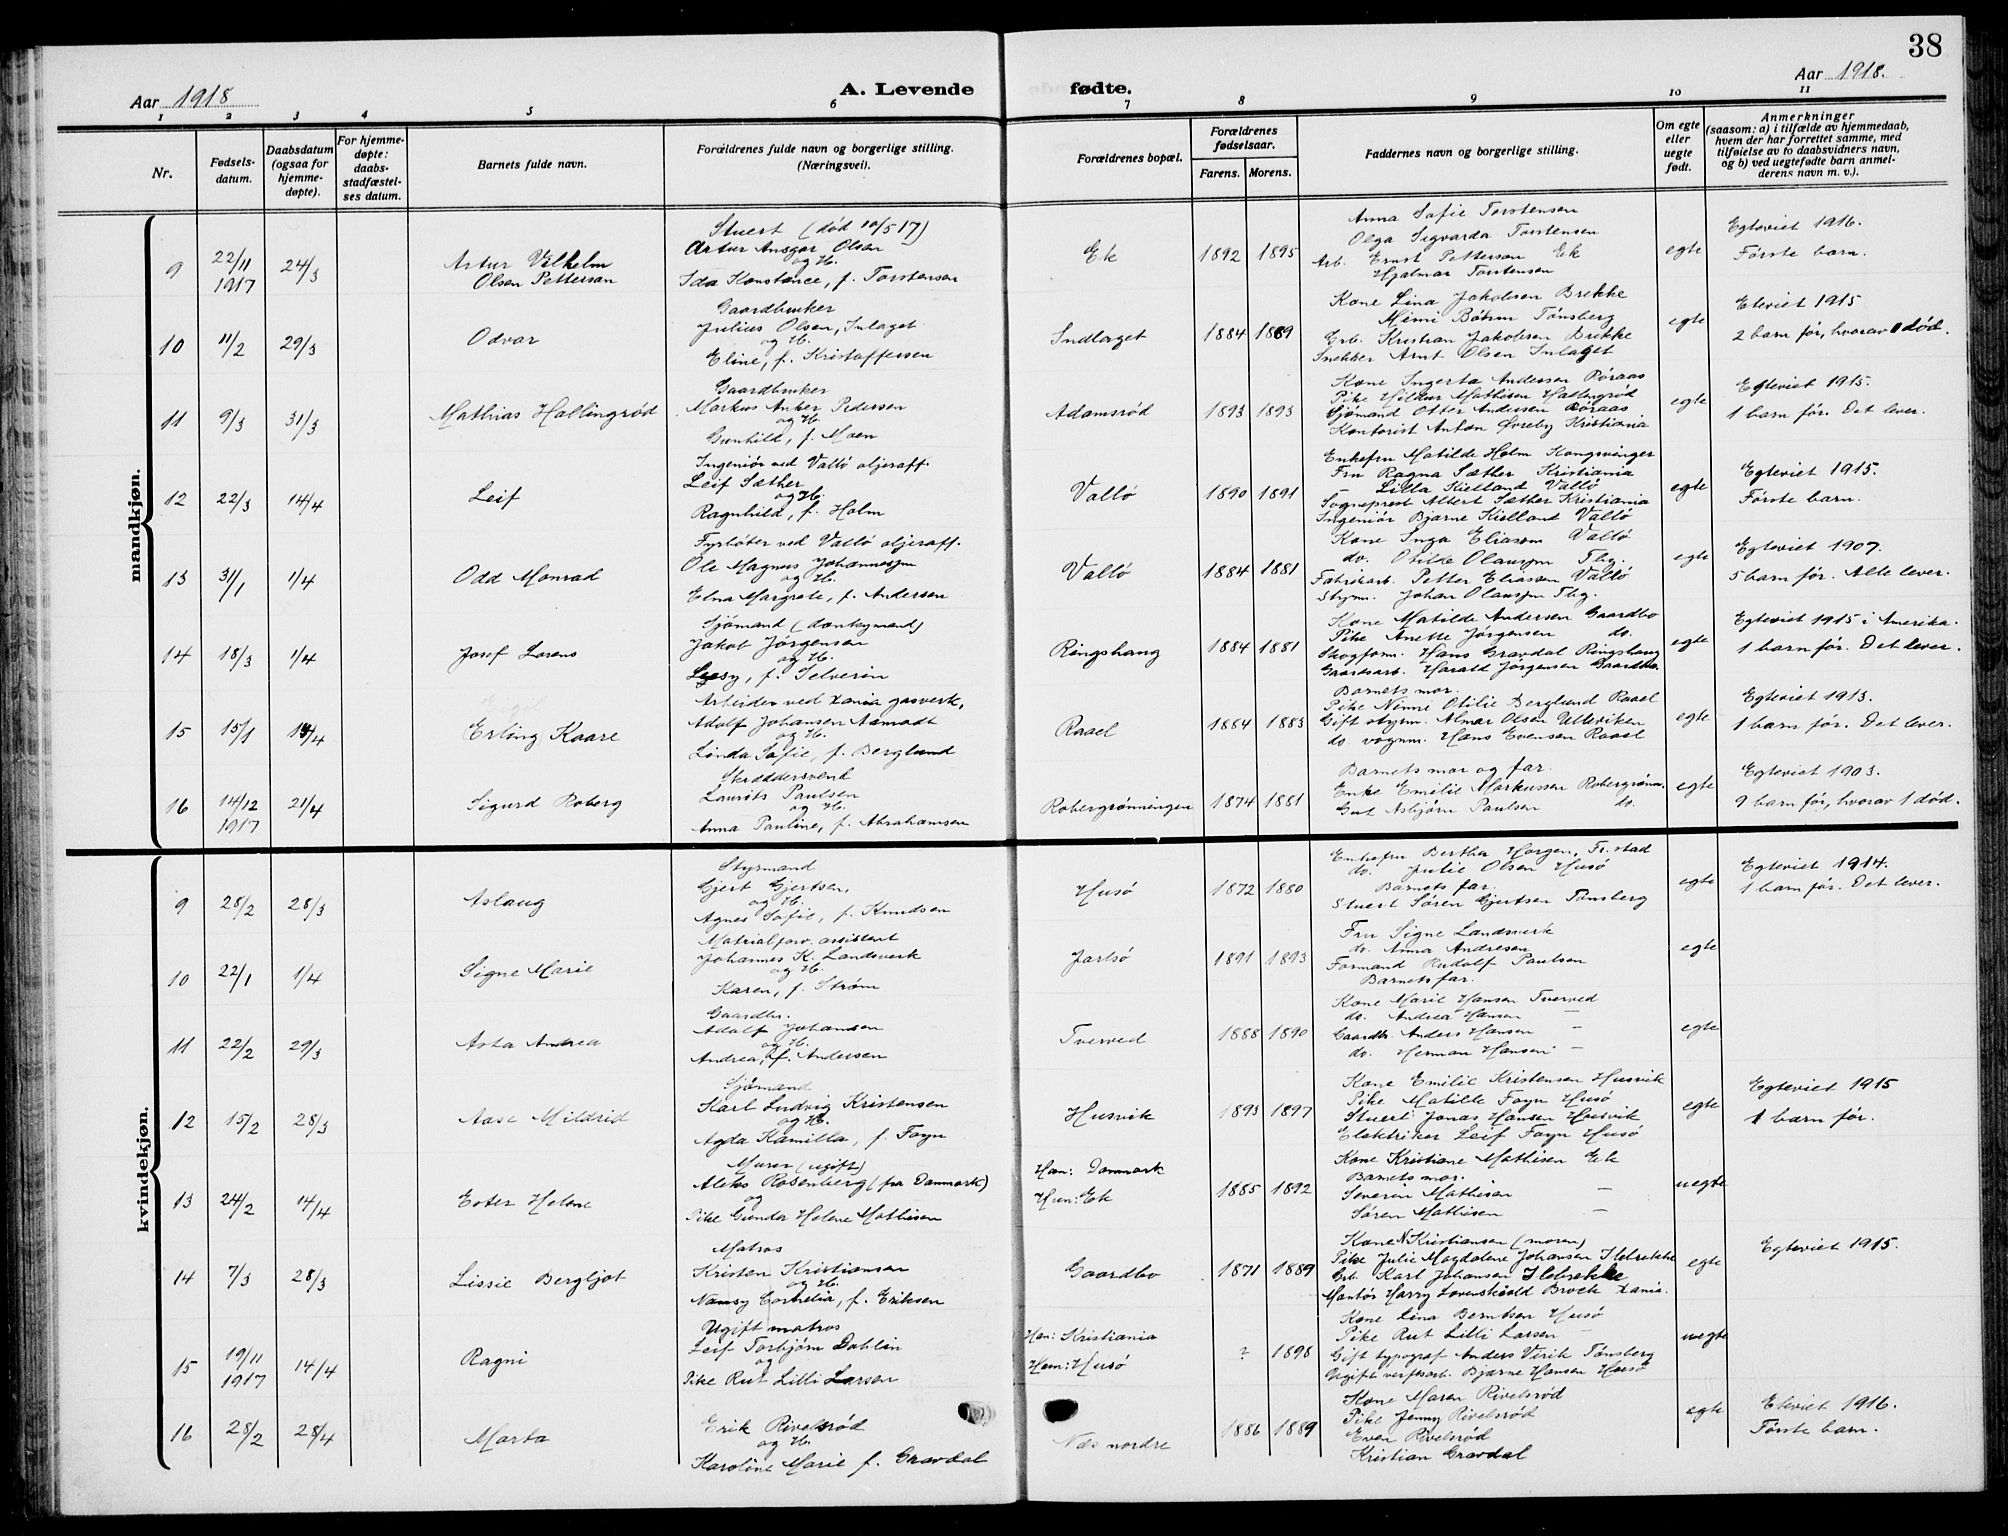 38
Aar 1918
A. Levende fødte.
Aar 1918.
1 2 3 4 5 6 7 8 9 10 11
Nr.
Fødsels-
datum.
Daabsdatum
(ogsaa for
hjemme-
døpte).
For hjemme-
døpte:
daabs-
stadfæstel-
ses datum.
Barnets fulde navn.
Forældrenes fulde navn og borgerlige stilling.
(Næringsvei).
Forældrenes bopæl.
Forældrenes
fødselsaar.
Farens. Morens.
Faddernes navn og borgerlige stilling.
Om egte
eller
uegte
født.
Anmerkninger
(saasom: a) i tilfælde av hjemmedaab,
hvem der har forrettet samme, med
tilføielse av to daabsvidners navn,
og b) ved uegtefødte barn anmel-
derens navn m. v.).
mandkjøn.
9
22/11
1917
24/3
Artur Vilhelm
Olsen Pettersen
Stuert (død 10/5 17)
Artur Ansgar Olsen
og H.
Ida Konstance, f. Torstensen
Ek
1892 1895
Anna Sofie Torstensen
Olga Sigvarda Torstensen
Arb. Ernst Pettersen Ek
Hjalmar Torstensen
egte
Egteviet 1916.
Første barn.
10
11/2
29/3
Odvar
Gaardbruker
Julius Olsen, Inlaget
og H.
Eline, f. Kristoffersen
Indlaget
1884 1889
Kone Lina Jakobsen Brekke
Mimi Bøhm Tønsberg
Grb. Kristian Jakobsen Brekke
Snekker Arnt Olsen Inlaget
egte
Eteviet 1915
2 barn før, hvorav 1 død.
11
9/3
31/3
Mathias Hallingrød
Gaardbruker
Markus Anker Pedersen
og H.
Gunhild, f. Moen
Adamsrød
1893 1893
Kone Ingerta Andersen Røraas
Pike Hildur Mathisen Hallingrød
Sjømand Otter Andersen Røraas
Kontorist Anton Øvreby Kristiania
egte
Egteviet 1915.
1 barn før. Det lever.
12
22/3
14/4
Leif
Ingeniør ved Vallø oljeraff.
Leif Sæther
og H.
Ragnhild, f. Holm
Vallø
1890 1891
Enkefru Matilde Holm Kongsvinger
Fru Ragna Sæther Kristiania
– Lilla Kielland Vallø
Sogneprest Albert Sæther Kristiania
Ingeniør Bjarne Kielland Vallø
egte
Egteviet 1915.
Første barn.
13
31/1
1/4
Odd Monrad
Fyrbøter ved Vallø oljeraff.
Ole Magnus Johannessen
og H.
Elna Margrete, f. Andersen
Vallø
1884 1881
Kone Inga Eliassen Vallø
do. Otilde Olaussen Tbg.
Fabrikarb. Petter Eliassen Vallø
Styrm. Johan Olaussen Tbg.
egte
Egteviet 1907.
5 barn før. Alle lever.
14
18/3
1/4
Josef Lorens
Sjømand (donkeymand)
Jakob Jørgensen
og H.
f. Selverin
Ringshaug
1884 1881
Kone Matilde Andersen Gaardbo
Pike Anette Jørgensen do.
Skogform. Hans Gravdal Ringshaug
Gaardsarb. Harald Jørgensen Gaardbo
egte
Egteviet 1915 i Amerika.
1 barn før. Det lever.
15
15/1
14/4
Erling Kaare
Arbeider ved Xania gasverk,
Adolf Johansen Aamodt
og H.
Linda Sofie, f. Berglund
Raael
1884 1883
Barnets mor.
Pike Nimi Otilie Berglund Raael
Gift styrm. Almar Olsen Ulleviken
do. vognm. Hans Evensen Raael
egte
Egteviet 1913.
1 barn før. Det lever.
16
14/12
1917
21/4
Sigurd Roberg
Skræddersvend
Laurits Paulsen
og H.
Anna Pauline, f. Abrahamsen
Robergrønningen
1874 1881
Barnets mor og far.
Enke Emilie Markussen Robergrønn.
Gut Asbjørn Paulsen do.
egte
Egteviet 1903.
9 barn før, hvorav 1 død.
kvindekjøn.
9
28/2
28/3
Aslaug
Styrmand
Gjert Gjertsen,
og H.
Agnes Sofie, f. Knudsen
Husø
1872 1880
Enkefru Bertha Horgen, Fr.stad
do. Julie Olsen Husø
Barnets far.
Stuert Søren Gjertsen Tønsberg
egte
Egteviet 1914.
1 barn før. Det lever.
10
22/1
1/4
Signe Marie
Matrialforv. assistent
Johannes K. Landsverk
og H.
Karen, f. Strøm
Jarlsø
1891 1893
Fru Signe Landsverk
do. Anna Andresen
Formand Rudolf Paulsen
Barnets far.
egte
11
22/2
29/3
Asta Andrea
Gaardbr.
Adolf Johansen
og H.
Andrea, f. Andersen
Tverved
1888 1890
Kone Marie Hansen Tverved
do. Andrea Hansen –
Gaardb. Anders Hansen –
do. Herman Hansen –
egte
12
15/2
28/3
Aase Mildrid
Sjømand
Karl Ludvig Kristensen
og H.
Agda Kamilla, f. Foyn
Husvik
1893 1897
Kone Emilie Kristensen Husvik
Pike Matilde Foyn Husø
Stuert Jonas Hansen Husvik
Elektriker Leif Foyn Husø
egte
Egteviet 1915
1 barn før.
13
24/2
14/4
Ester Helene
Murer (ugift)
Aleks Rosenberg (fra Danmark)
og
Pike Gunda Helene Mathisen
Han: Danmark
Hun: Ek
1885 1892
Kone Kristiane Mathisen Ek
Barnets mor.
Severin Mathisen –
Søren Mathisen –
uegte
14
7/3
28/3
Lissie Bergljot
Matros
Kristen Kristiansen
og H.
Nansy Cornelia, f. Eriksen
Gaardbo
1871 1889
Kone N Kristiansen (moren)
Pike Julie Magdalene Johansen Ilebrekke
Grb. Karl Johansen Ilebrekke
Montør Harry Løvenskiold Broch Xania.
egte
Egteviet 1915.
15
19/11
1917
14/4
Ragni
Ugift matros
Leif Torbjørn Dahlin
og
Pike Rut Lilli Larsen
Han: Kristiania
Hun: Husø
? 1898
Kone Lina Berntsen Husø
Pike Rut Lilli Larsen –
Gift typograf Anders Virik Tønsberg
Ugift verftsarb. Bjarne Hansen Husø
uegte
16
28/2
28/4
Marta
Erik Rivelsrød
og H.
Karoline Marie f. Gravdal
Næs nordre
1886 1889
Kone Maren Rivelsrød
Pike Jenny Rivelsrød
Even Rivelsrød
Kristian Gravdal
egte
Eteviet 1916.
Første barn.